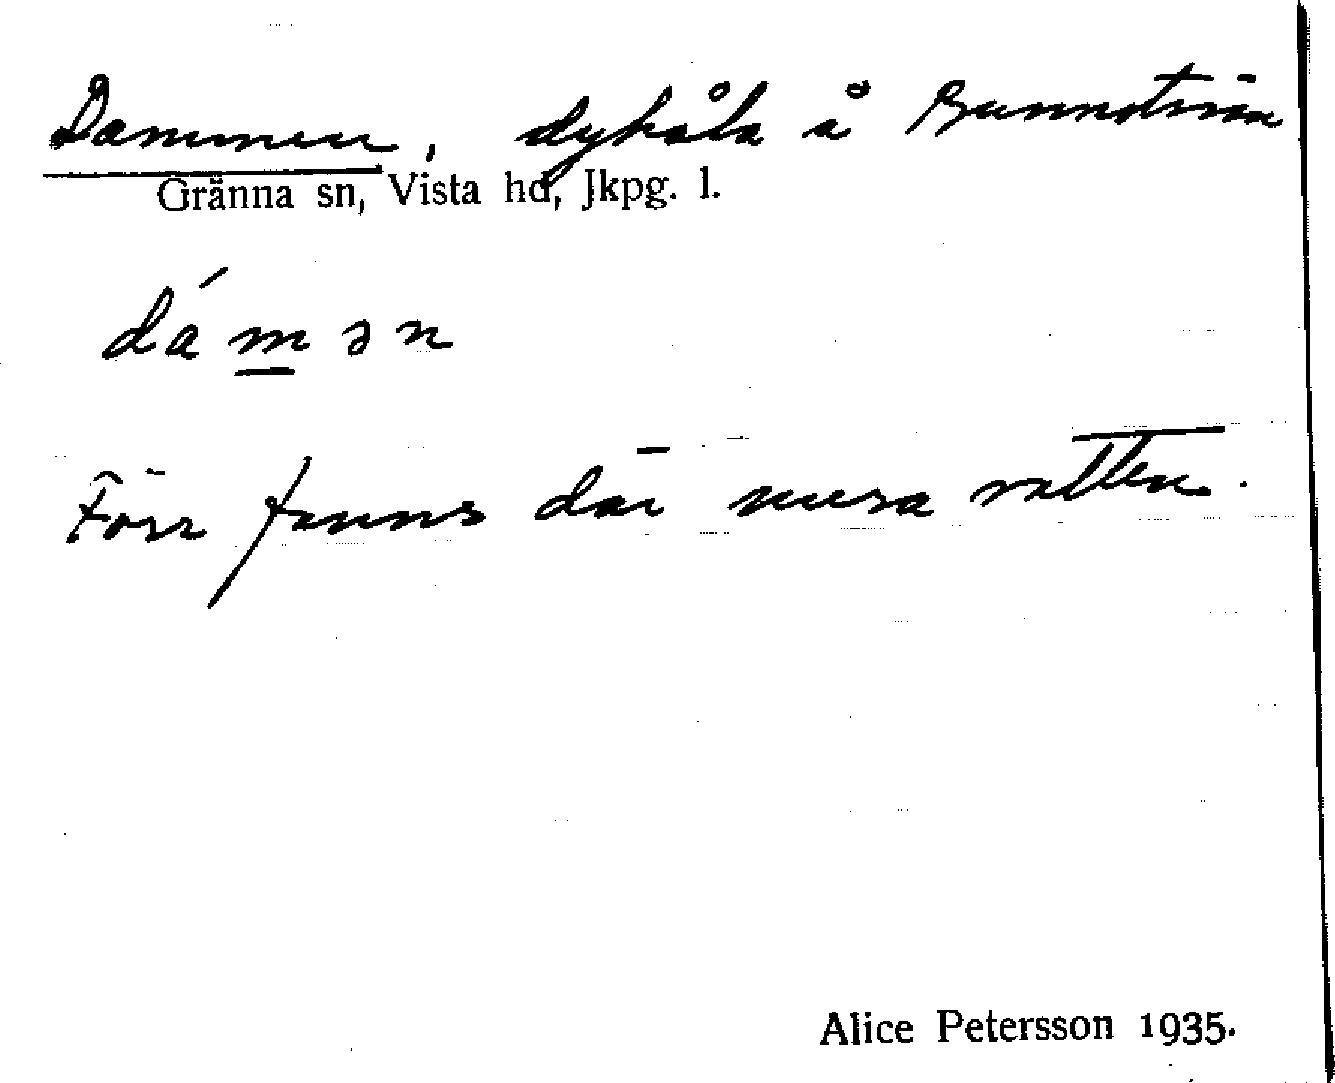 Dammen, dyhåla å Gunnströn
Gränna sn, Vista hd, Jkpg. l.
dámən
Förr fanns där mera vatten.
Alice Petersson 1935.